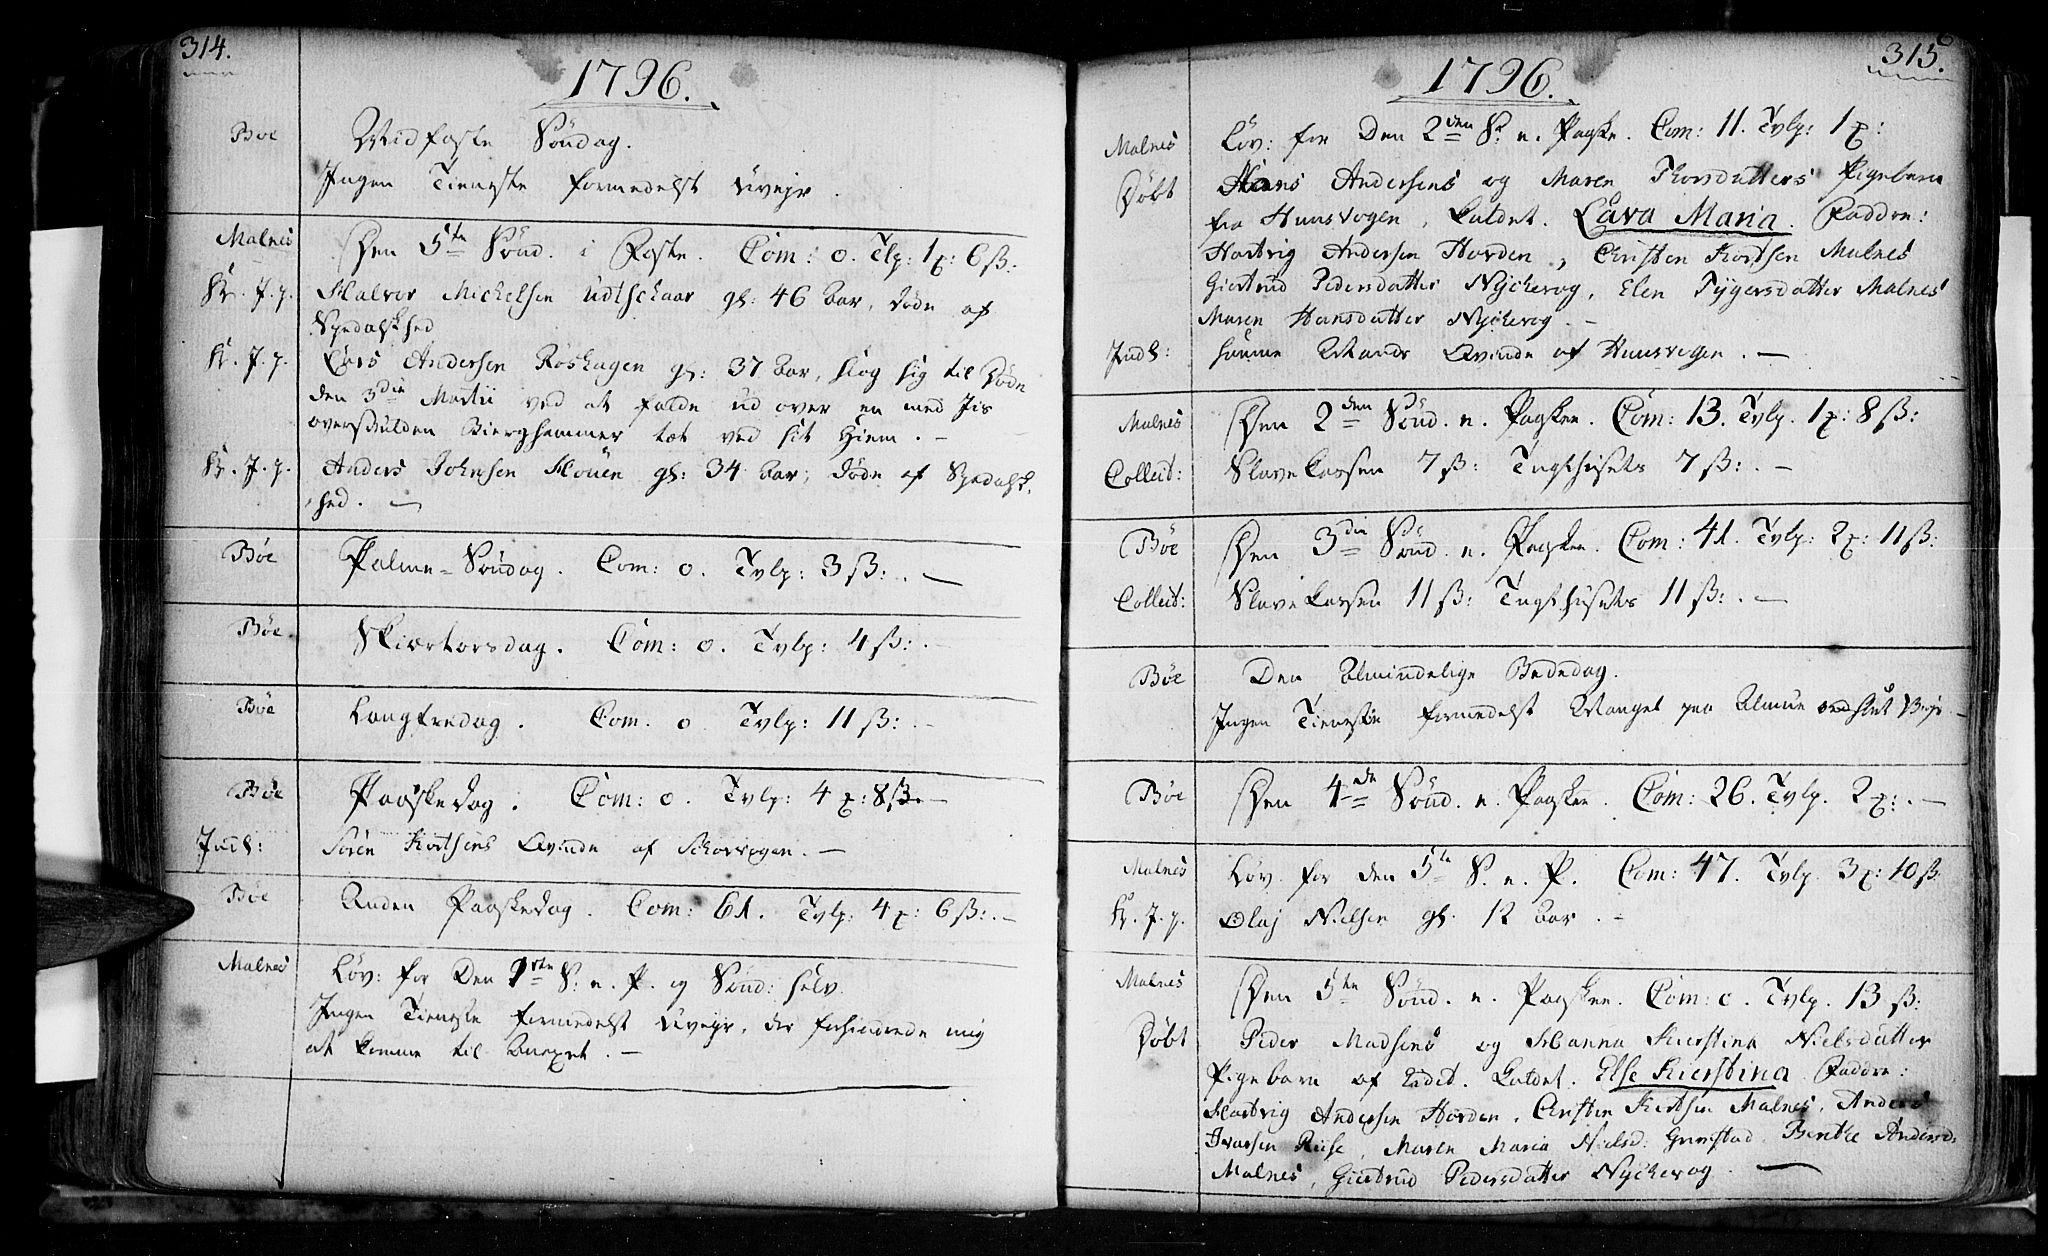 314.
1796.
Bøe Midfaste Søndag.
Ingen Tieneste formedelst Uvejr.
Malnes Den 5te Sønd. i Faste. Com: 0. Tlp: 1 ʒ: 6 ß:
Gr. J. p. Halvor Michelsen Udtschaar gl: 46 Aar, døde af
Spedalskhed
Gr. J. p. Lars Andersen Roshagen gl: 37 Aar, slog sig til døde
den 3die Martii ved at falde ud over en med Iis
overskulden Bierghammer tæt ved sit Hiem. –
Gr. J. p. Anders Johnsen Houen gl: 34 Aar, døde af Spedalsk,
,hed. –
Bøe Palme-Søndag. Com: 0. Tvlp: 3 ß: . –
Bøe Skiærtorsdag. Com: 0. Tvlp: 4 ß: . –
Bøe Langfredag. Com. 0. Tvlp: 11 ß: . –
Bøe Paaskedag. Com: 0. Tvlp: 4 ʒ: 8 ß. –
Indl: Sören Kortsens Qvinde af Schorvogen. –
Bøe Anden Paaskedag. Com: 61. Tvlp: 4 ʒ: 6 ß: . –
Malnes Løv: for Den 1ste S: e. P. og Sønd: selv
Ingen Tieneste formedelst Uvejr, der forhindrede mig
at komme til Annexet. –
315.
1796.
Malnes Løv: for Den 2den S: e. Paaske. Com: 11. Tvlp: 1 ʒ:
Døbt Hans Andersens og Maren Thorsdatters Pigebarn
fra Hunsvogen, kaldet. Lava Maria. Faddre:
Hartvig Andersen Horden, Christen Kortsen Malnes
Giertrud Pedersdatter Nychevog, Elen Tygersdatter Malnes
Maren Hansdatter Nychevog. –
Indl: samme Mands Qvinde af Hunsvogen. –
Malnes Den 2den Sønd. e. Paasken. Com: 13. Tvlp. 1 ʒ: 8 ß:
Collect: Slavekassen 7 ß: Tugthusets 7 ß: . –
Bøe Den 3die Sønd. e. Paasken. Com: 41. Tvlp: 2 ʒ: 11 ß:
Collect: Slavekassen 11 ß: Tugthusets 11 ß: . –
Bøe Den Almindelige Bededag.
Ingen Tieneste formedelst Mangel paa Almue ved slet Vejr. –
Bøe Den 4de Sønd. e. Paasken. Com: 26. Tvlp. 2 ʒ: . –
Malnes Løv. for den 5te S. e. P. Com: 47. Tvlp. 3 ʒ: 10 ß.
Gr. J. p. Olaj Nielsen gl. 12 Aar. –
Malnes Den 5te Sønd. e. Paasken. Com: 0. Tvlp. 13 ß:
Døbt Peder Madsens og Hanna Kierstina Nielsdatter
Pigebarn af kaldet. Else Kierstina. Faddre:
Hartvig Andersen Horden, Christen Kortsen Malnes, Anders
Ivarsen Riise, Maren Maria Nielsd: Grimstad. Berthe Andersd:
Malnes, Giertrud Pedersdatter Nychevog. –